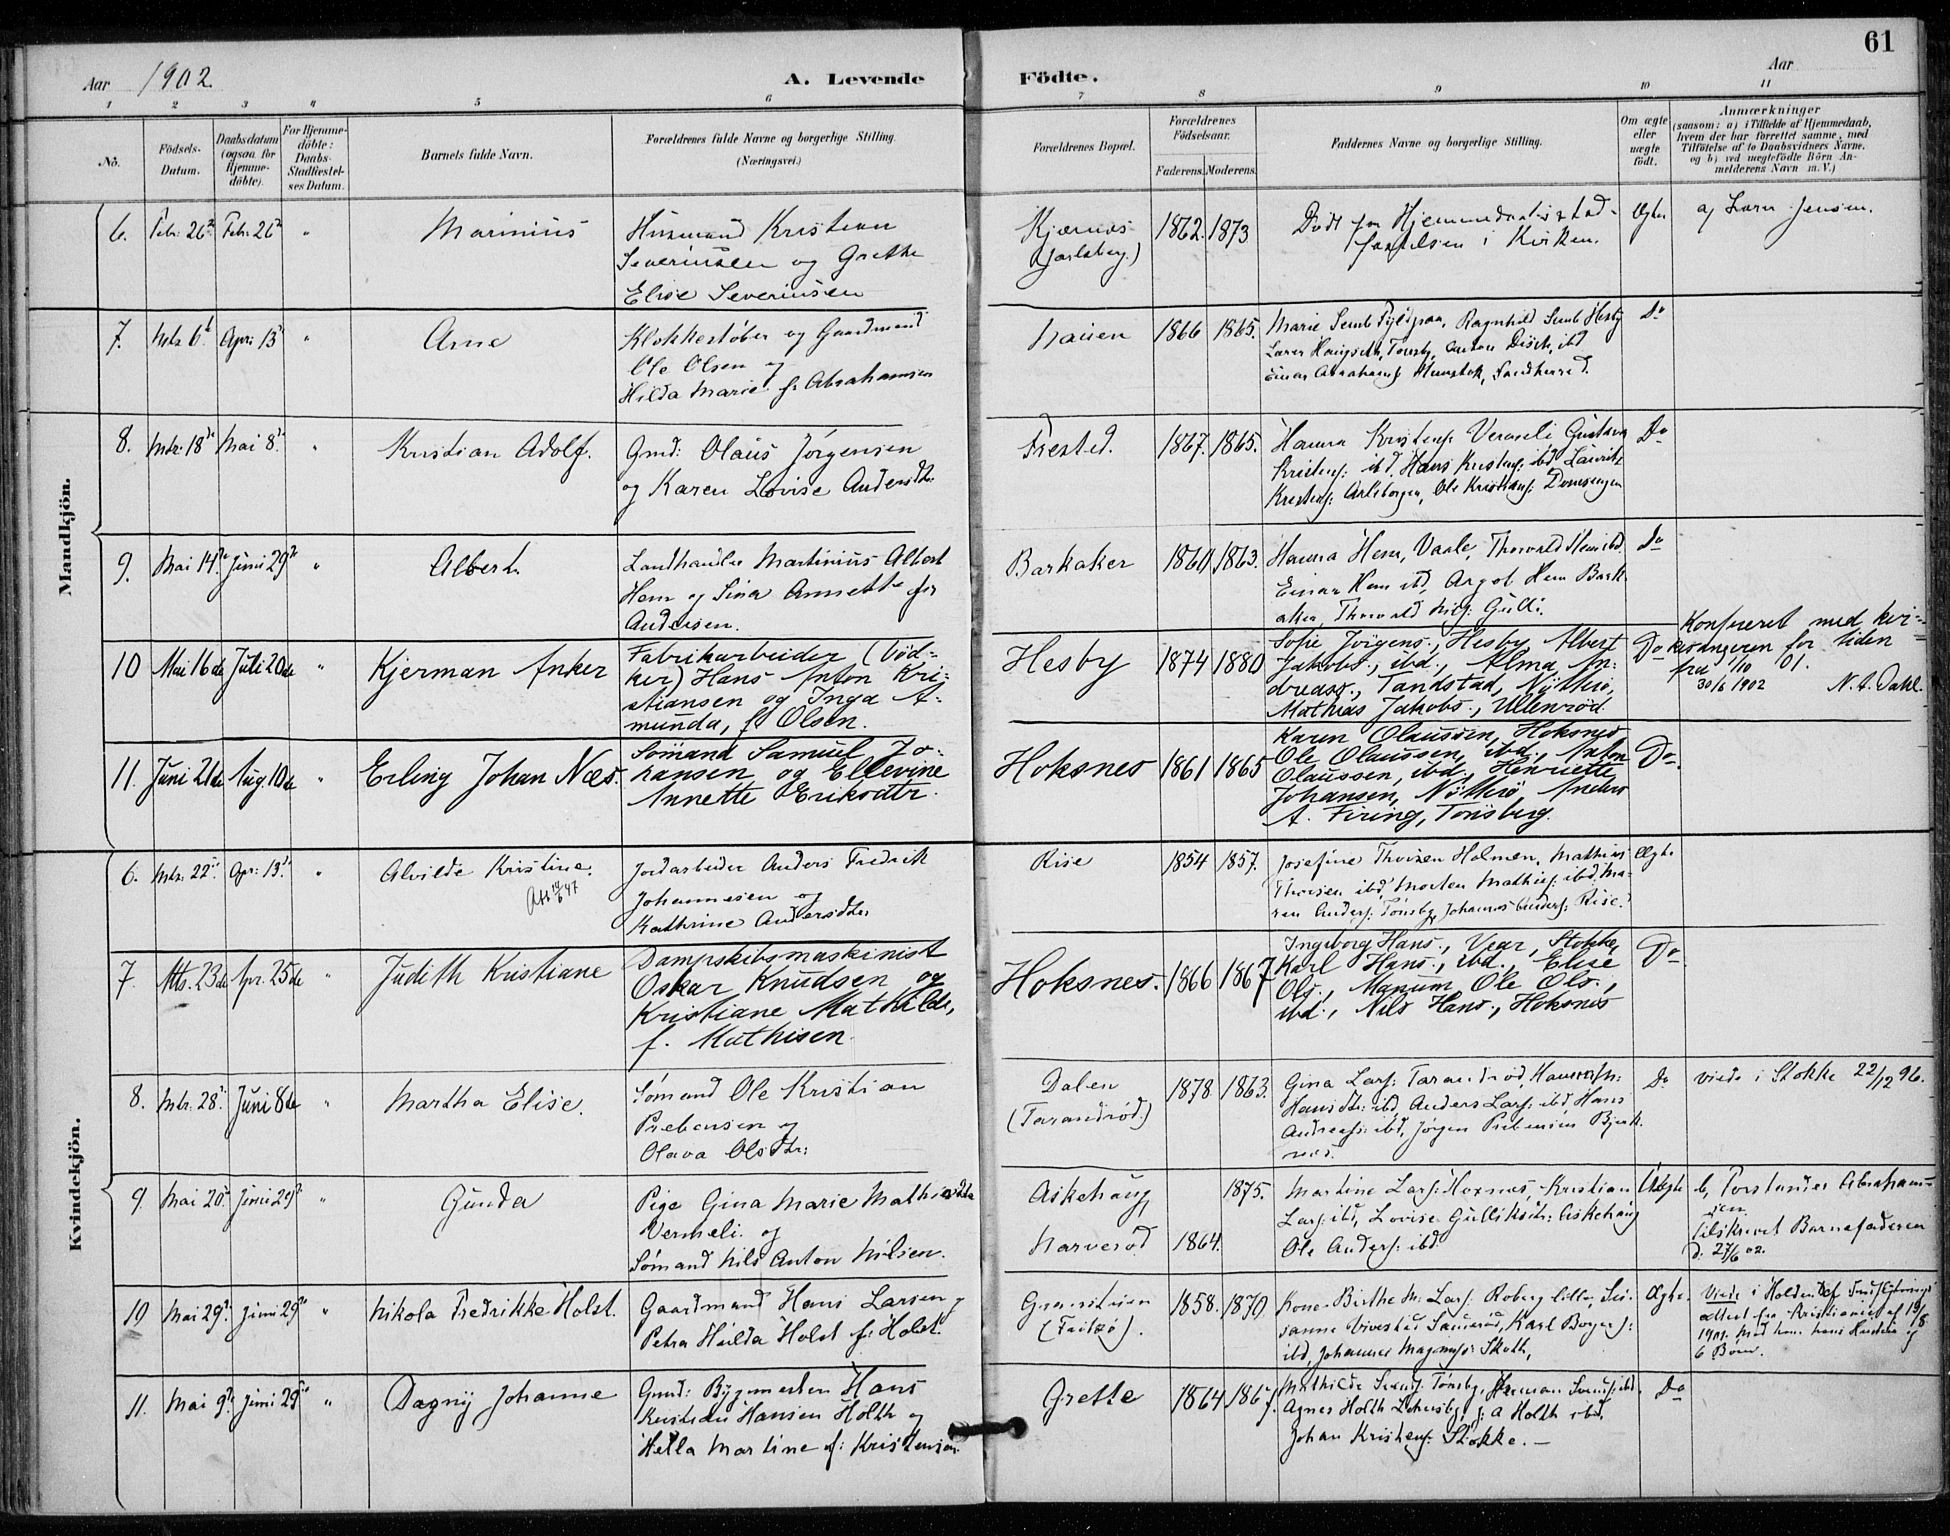 61
Aar 1902.
A. Levende Födte.
Aar
1 2 3 4 5 6 7 8 9 10 11
No.
Födsels-Datum.
Daabsdatum (ogsaa for Hjemme-döbte).
For Hjemme-döbte: Daabs-Stadfæstel-ses Datum.
Barnets fulde Navn.
Forældrenes fulde Navne og borgerlige Stilling. (Næringsvei.)
Forældrenes Bopæl.
Forældrenes Födselsaar.
Faderens. Moderens.
Faddernes Navne og borgerlige Stilling.
Om ægte eller uægte födt.
Anmærkninger
(saasom: a) i Tilfælde af Hjemmedaab, hvem der har forrettet samme, med Tilföielse af to Daabsvidners Navne, og b) ved uægtefödte Börn An-melderens Navn m.V.)
Mandkjön.
6. Febr. 26 Febr. 26 " Marinius
Husmand Kristian
Severinsen og Grethe
Elise Severinsen
Kjærnes
(Jarlsberg.)
1862. 1873
Død før Hjemmedaabsstad-
fæstelsen i Kirken.
Ægte.
a) Lars Jensen.
7. Mrts 6 Apr: 13 " Arne
Klokkestøber og Gaardmand
Ole Olsen og
Hilda Marie f. Abrahamsen
Nauen
1866 1865.
Marie Semb Ragnhild Semb Hesby
Tønsb, Anton ibd
Einar Abrahams
Do
8. Mrts: 18 Mai 8. " Kristian Adolf.
Gmd: Olaus Jörgensen
og Karen Lovise Andersdtr.
Frested.
1867. 1865.
Hanna Kristens: Vermeli Gustava
Kristens: ibd, Hans Kristens: ibd Lauritz
Kristens: Ole Kristians:
Do
9. Mai 14. Juni 29 " Albert.
Landhandler Martinius Albert
Hem og Sina Annette før
Andersen.
Barkaker
1860 1863.
Hanna Hem, Vaale, Thorvald Hem ibd.
Einar Hem ibd, Hem Bark-
aker, Thorvald Gulli.
Do
10 Mai 16de Juli 20de " Kjerman Anker
Fabrikarbeider (Bød=
ker) Hans Anton Kri=
stiansen og Inga A=
munda, f. Olsen.
Hesby
1874 1880
Sofie Jörgens., Hesby Albert
Jakobs., ibd., Alma An-
dreass., Tandstad, Nötterö,
Mathias Jakobs., Ullenröd
Do
Konfereret med kir-
kesangeren for tiden
fra 1/10 01.
30/6 1902 N. A. Dahl.
11. Juni 21de Aug. 10de " Erling Johan Næs.
Sömand Samuel Jo-
hansen og Ellevine
Annette Eriksdtr.
Hoksnes
1861 1865
Karen Olaussen, Hoksnes
Ole Olaussen, ibd., Anton
Olaussen, ibd., Henriette
Johansen, Nötterö Anders
A. Firing, Tönsberg.
Do
Kvindekjön.
6. Mrts. 22 Apr: 13 " Alvilde Kristine.
Att
Jordarbeider Anders Fredrik
Johannesen og
Kathrine Andersdtr
Rise
1854 1857.
Josefine Thorsen Holmen, Mathias
Thorsen ibd, Morten Mathias: ibd, Ma-
ren Anders: Tønsbg, Johannes Anders: Rise.
Ægte.
7. Mts. 23de Apr. 25de " Judith Kristiane
Dampskibsmaskinist
Oskar Knudsen og
Kristiane Mathilde,
f. Mathisen.
Hoksnes.
1866 1867
Ingeborg Hans., Vear, Stokke,
Karl Hans., ibd., Elise
Ols., Manum, Ole Ols.,
ibd., Nils Hans., Hoksnes
Do
8. Mrts. 28 Juni 8de " Martha Elise.
Sømand Ole Kristian
Prebensen og
Olava Olsdtr:
Dalen
(Tarandrød)
1878 1863.
Gina Lars: Tarandrød,
Hansdtr: ibd, Anders Lars: ibd, Hans
Andreas: ibd, Jørgen Prebensen
Do
viede i Stokke 22/12 96.
9. Mai 20 Juni 29 " Gunda
Pige Gina Marie Mathiasdtr
Vermeli og
Sømand Nils Anton Nilsen.
Askehaug
Narverød
1875.
1864.
Martine Lars: Hoxnes, Kristian
Lars: ibd, Lovise Gulliksdtr: Askehaug
Ole Anders: ibd
Uægte
b, Forstander Abraham-
sen
tilskrevet Barnefaderen
d. 27/6 02.
10 Mai 29. Juni 29 " Nikola Fredrikke Holst.
Gaardmand Hans Larsen
Petra Hilda Holst f. Holst.
(Fritzø).
1858. 1870
Kone Birthe M. Lars: Roberg lille, Su-
sanne Karl
ibd, Johannes
Ægte.
Viede i Holden
attest fra Kristiania af 19/8
1901. med hans Hustru og
6 Børn.
11. Mai 9. Juni 29 " Dagny Johanne
Gmd: Bygmester Hans
Kristian Hansen Holth og
Hella Martine f: Kristensen.
Grette
1864 1867.
Mathilde Tønsbg, Herman ibd.
Agnes Holth A Holth ibd.
Johan Kristens: Stokke. —
Do